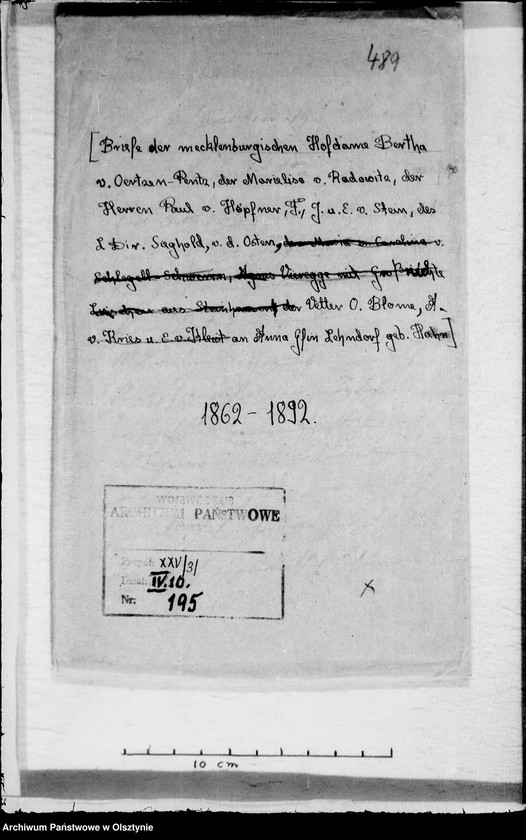 489
[Briefe der mecklenburgischen Hofdame Bertha
v. Oertzen-Pentz, der Marielise v. Radowitz, der
Herren Paul v. Höpfner, F., J. u. E. v. Stein, des
L Dir. Saghold, v. d. Osten, der Maria u. Carolina v.
Schlegell-Schwerin, Agnes Vieregge mit Großnichte
aus der Vetter O. Blome, A.
v. Kries u. E. v. Kleist an Anna Gfin Lehndorf geb. Hahn]
1862 - 1892.
WOJEWÓDZKIE
ARCHIWUM PAŃSTWOWE
Zespół: XXV/3/
Dział: IV.10.
Nr: 195
x
10 cm
Archiwum Państwowe w Olsztynie